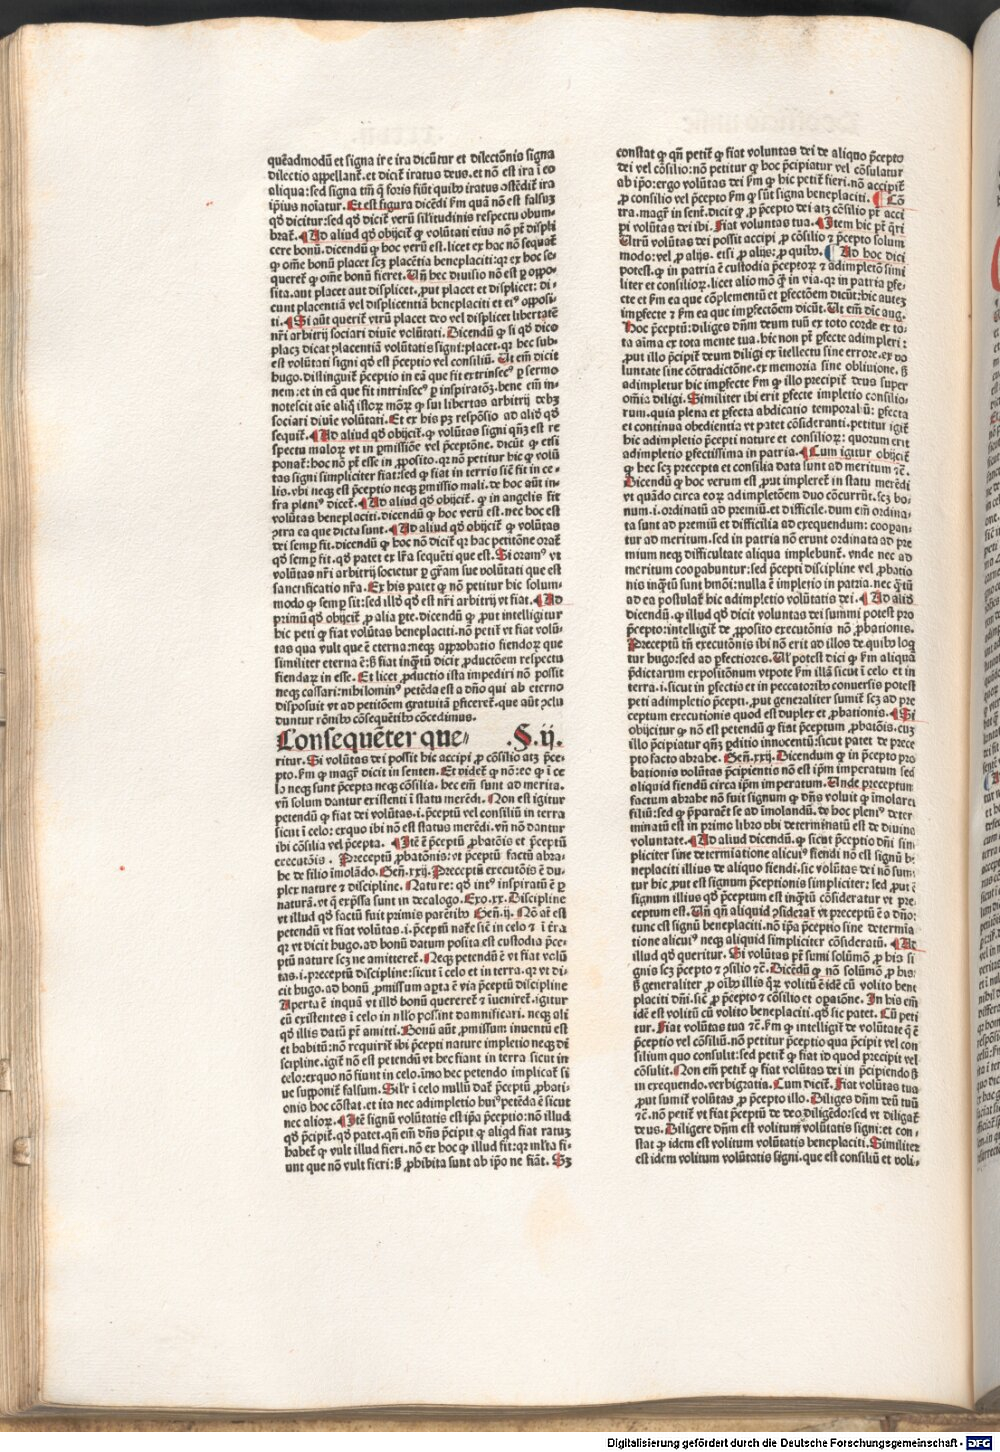 quēadmodū et signa ire ira dicūtur et dilectōnis signa
dilectio appellant᷑. et dicit᷑ iratus deus. et nō est ira i eo
aliqua: sed signa tm̄ ꝙ foris fiūt quibꝰ iratus ostēdit᷑ ira
ip̄ius noiatur. Et est figura dicēdi ẜm quā nō est falsuꝫ
qd̓ dicitur: sed qd̓ dicit᷑ verū silitudinis respectu obum-
brat᷑. Ad aliud qd̓ obijcit᷑ ꝙ volūtati eius nō pt̄ displi
cere bonū. dicendū ꝙ hoc verū est. licet ex hac nō sequat᷑
ꝙ om̄e bonū placet scꝫ placētia beneplaciti: qꝛ ex hoc se-
queret᷑ ꝙ om̄e bonū fieret. Un̄ hec diuisio nō est ꝑ oppo-
sita. aut placet aut displicet. ꝓut placet et displicet: di-
cunt placentiā vel displicentiā beneplaciti et eiꝰ opposi-
ti. Si aūt querit᷑ vtrū placet deo vel displicet libertatē
nr̄i arbitrij sociari diuie volūtati. Dicendū ꝙ si qd̓ dico
placꝫ dicat placentiā volūtatis signi: placet. qꝛ hec sub-
est volūtati signi qd̓ est p̄ceptio vel consiliū. Ut em̄ dicit
hugo. distinguit᷑ p̄ceptio in eā que fit extrinsecꝰ ꝑ sermo
nem: et in eā que fit intrinsecꝰ ꝑ inspiratōꝫ. bene em̄ in-
notescit aīe aliq̄ istoꝝ moꝝ ꝙ sui libertas arbitrij debꝫ
sociari diuie volūtati. Et ex his pꝫ respōsio ad aliō qd̓
sequit᷑. Ad aliud qd̓ obijcit᷑ ꝙ volūtas signi qn̄ꝫ est re
spectu maloꝝ vt in ꝑmissiōe vel p̄ceptōne. dicūt ꝙ etsi
ponat᷑: hoc nō pt̄ esse in ꝓposito. qꝛ nō petitur hic ꝙ volū
tas signi simpliciter fiat: sed ꝙ fiat in terris sic̄ fit in ce-
lis. vbi neqꝫ est p̄ceptio neqꝫ ꝑmissio mali. de hoc aūt in-
fra pleniꝰ dicet᷑. Ad aliud qd̓ obijcit᷑. ꝙ in angelis fit
volūtas beneplaciti. dicendū ꝙ hoc verū est. nec hoc est
ↄtra ea que dicta sunt. Ad aliud qd̓ obijcit᷑ ꝙ volūtas
dei semꝑ fit. dicendū ꝙ hoc nō dicit᷑ qꝛ hac petitōne orat᷑
qd̓ semꝑ fit. qd̓ patet ex lr̄a sequēti que est. Si oramꝰ vt
volūtas nr̄i arbitrij societur ꝑ gr̄am sue volūtati que est
sanctificatio nr̄a. Ex his patet ꝙ nō petitur hic solum-
modo ꝙ semꝑ fit: sed illō qd̓ est nr̄i arbitrij vt fiat. Ad
primū qd̓ obijcit᷑ ꝓ alia ꝑte. dicendū ꝙ ꝓut intelligitur
hic peti ꝙ fiat volūtas beneplaciti. nō petit᷑ vt fiat volū-
tas qua vult que ē eterna: neqꝫ approbatio fiendoꝝ que
similiter eterna ē: ẜ fiat inqͣtū dicit ꝓductōem respectu
fiendaꝝ in esse. Et licet ꝓductio ista impediri nō possit
neqꝫ cassari: nihilominꝰ petēda est a dn̄o qui ab eterno
disposuit vt ad petitōem gratuitā ꝑficeret᷑. que aūt ↄclu
duntur rōnibꝰ cōsequētibꝰ cōcedimus.
Consequēter que- .§.ij.
ritur. Si volūtas dei possit hic accipi ꝓ cōsilio atqꝫ p̄ce-
pto. ẜm ꝙ magr̄ dicit in senten. Et videt᷑ ꝙ nō: eo ꝙ i ce
lo neqꝫ sunt p̄cepta neqꝫ cōsilia. hec em̄ sunt ad merita.
vn̄ solum dantur existenti i statu merēdi. Non est igitur
petendū ꝙ fiat dei volūtas. i. p̄ceptū vel consiliū in terra
sicut i celo: ex quo ibi nō est status merēdi. vn̄ nō dantur
ibi cōsilia vel p̄cepta. Itē ē p̄ceptū ꝓbatōis et p̄ceptū
executōis. Preceptū ꝓbatōnis: vt p̄ceptū factū abra-
he de filio imolādo. Gen̄. xxij. Preceptū executōis ē du-
plex nature ⁊ discipline. Nature: qd̓ intꝰ inspiratū ē ꝑ
naturā. vt q̄ exp̄ssa sunt in decalogo. Exo. xx. Discipline
vt illud qd̓ factū fuit primis parētibꝰ Gen̄. ij. Nō at̄ est
petendū vt fiat volūtas. i. p̄ceptū nat̄e sic̄ in celo ⁊ i t̄ra
qꝛ vt dicit hugo. ad bonū datum posita est custodia p̄ce-
ptū nature scꝫ ne amitteret᷑. Neqꝫ petendū ē vt fiat volū
tas. i. preceptū discipline: sicut i celo et in terra. qꝛ vt di-
cit hugo. ad bonū ꝓmissum apta ē via p̄ceptū discipline
Aperta ē inquā vt illō bonū quereret᷑ ⁊ iueniret᷑. igitur
cū existentes i celo in nllo possint damnificari. neqꝫ ali
qd̓ illis datū pt̄ amitti. Bonū aūt ꝓmissum inuentū est
et habitū: nō requirit᷑ ibi p̄cepti nature impletio neqꝫ di
scipline. igit᷑ nō est petendū vt hec fiant in terra sicut in
celo: ex quo nō fiunt in celo. imo hec petendo implicat᷑ si
ue supponit᷑ falsum. Silr̄ i celo nullū dat᷑ p̄ceptū ꝓbati-
onis hoc cōstat. et ita nec adimpletio huiꝰ petēda ē sicut
nec alioꝝ. Itē signū volūtatis est ip̄a p̄ceptio: nō illud
qd̓ p̄cipit᷑. qd̓ patet. qn̄ em̄ dn̄s p̄cipit ꝙ aliqd̓ fiat ratuꝫ
habet᷑ ꝙ vult illud fieri. nō ex hoc ꝙ illud fit: qꝛ ml̄ta fi-
unt que nō vult fieri: ẜ ꝓhibita sunt ab ip̄o ne fiāt. Sꝫ
constat ꝙ qn̄ petit᷑ ꝙ fiat voluntas dei de aliquo p̄cepto
dei vel cōsilio: nō petitur ꝙ hoc p̄cipiatur vel cōsulatur
ab ip̄o: ergo volūtas dei ẜm ꝙ hic petit᷑ fieri. nō accipit᷑
ꝓ consilio vel p̄cepto ẜm ꝙ sūt signa beneplaciti. Cō
tra. magr̄ in sent᷑. dicit ꝙ ꝓ p̄cepto dei atqꝫ cōsilio pt̄ acci
pi volūtas dei ibi. Fiat voluntas tua. Item hic pt̄ q̄ri
Utrū volūtas dei possit accipi ꝓ cōsilio ⁊ p̄cepto solum
modo: vel ꝓ alijs. etsi ꝓ alijs: ꝓ quibꝰ. Ad hoc dici
potest. ꝙ in patria ē custodia p̄ceptoꝝ ⁊ adimpletō simi
liter et consilioꝝ. licet alio mō ꝙ̄ in via. qꝛ in patria ꝑfe-
cte et ẜm ea que cōplementū et ꝑfectōem dicūt: hic auteꝫ
imꝑfecte ⁊ ẜm ea que imꝑfectōem dicūt. Ut em̄ dic̄ aug.
Hoc p̄ceptū: diliges dn̄m deum tuū ex toto corde ex to-
ta aīma ex tota mente tua. hic non pt̄ ꝑfecte adimpleri:
ꝓut illo p̄cipit᷑ deum diligi ex itellectu sine errore. ex vo
luntate sine cōtradictōne. ex memoria sine obliuione. ẜ
adimpletur hic imꝑfecte ẜm ꝙ illo precipit᷑ deus super
om̄ia diligi. Similiter ibi erit ꝑfecte impletio consilio-
rum. quia plena et ꝑfecta abdicatio temporaliū: ꝑfecta
et continua obedientia vt patet cōsideranti. petitur igit᷑
hic adimpletio p̄cepti nature et consilioꝝ: quorum erit
adimpletio ꝑfectissima in patria. Cum igitur obijcit᷑
ꝙ hec scꝫ precepta et consilia data sunt ad meritum ⁊c̄.
Dicendū ꝙ hoc verum est ꝓut implent᷑ in statu merēdi
vt quādo circa eoꝝ adimpletōem duo cōcurrūt. scꝫ bo-
num. i. ordinatū ad premiū. et difficile. dum em̄ ordina-
ta sunt ad premiū et difficilia ad exequendum: cooꝑan-
tur ad meritum. sed in patria nō erunt ordinata ad pre
mium neqꝫ difficultate aliqua implebunt᷑. vnde nec ad
meritum cooꝑabuntur: sed p̄cepti discipline vel ꝓbatio
nis inqͣtū sunt hmōi: nulla ē impletio in patria. nec qͣtū
ad ea postulat᷑ hic adimpletio volūtatis dei. Ad aliō
dicendū. ꝙ illud qd̓ dicit voluntas dei summi potest pro
p̄cepto: intelligit᷑ de ꝓposito executōnis nō ꝓbationis.
Preceptū tn̄ executōnis ibi nō erit ad illos de quibꝰ loq̄
tur hugo: sed ad ꝑfectiores. Ul̓ potest dici ꝙ ẜm aliquā
p̄dictarum expositōnum vtpote ẜm illā sicut i celo et in
terra. i. sicut in ꝑfectis et in peccatoribꝰ conuersis potest
peti adimpletio p̄cepti. ꝓut generaliter sumit᷑ scꝫ ad pre
ceptum executionis quod est duplex et ꝓbationis. Si
obijcitur ꝙ nō est petendū ꝙ fiat p̄ceptum ꝓbatōis. cuꝫ
illo p̄cipiatur qn̄qꝫ ꝑditio innocentū: sicut patet de prece
pto facto abrahe. Gen̄. xxij. Dicendum ꝙ in p̄cepto pro
bationis volūtas p̄cipientis nō est ip̄m imperatum sed
aliquid fiendū circa ip̄m imperatum. Unde preceptum
factum abrahe nō fuit signum ꝙ dn̄s voluit ꝙ imolaret᷑
filiū: sed ꝙ p̄pararēt se ad imolandū. de hoc pleniꝰ deter
minatū est in primo libro vbi determinatū est de diuina
voluntate. Ad aliud dicendū. ꝙ sicut p̄ceptio dn̄i sim-
pliciter sine determiatione alicuiꝰ fiendi nō est signū be
neplaciti illius de aliquo fiendi. sic volūtas dei nō sum-
tur hic ꝓut est signum p̄ceptionis simpliciter: sed ꝓut ē
signum illius qd̓ p̄ceptum est inqͣtū cōsideratur vt pre-
ceptum est. Un̄ qn̄ aliquid ↄsiderat᷑ vt preceptū ē a dn̄o:
tunc est signū beneplaciti. nō ip̄a p̄ceptio sine determia
tione alicuiꝰ neqꝫ aliquid simpliciter cōsideratū. Ad
illud qd̓ queritur. Si volūtas pt̄ sumi solūmō ꝓ his si
gnis scꝫ p̄cepto ⁊ ↄsilio ⁊c̄. Dicēdū ꝙ nō solūmō ꝓ his:
ẜ generaliter ꝓ oībꝰ illis q̄ꝝ volitū ē idē cū volito bene
placiti dn̄i. sic̄ ꝓ p̄cepto ⁊ cōsilio et oꝑatōne. In his em̄
idē est volitū cū volito beneplaciti. qd̓ sic patet. Cū peti
tur. Fiat volūtas tua ⁊c̄. ẜm ꝙ intelligit᷑ de volūtate q̄ ē
p̄ceptio vel cōsiliū. nō petitur p̄ceptio qua p̄cipit vel con
silium quo consulit: sed petit᷑ ꝙ fiat id quod precipit vel
cōsulit. Non em̄ petit᷑ ꝙ fiat volūtas dei in p̄cipiendo ẜ
in exequendo. verbigratia. Cum dicit᷑. Fiat volūtas tua
ꝓut sumit᷑ volūtas ꝓ p̄cepto illo. Diliges dn̄m deū tuū
⁊c̄. nō petit᷑ vt fiat p̄ceptū de deo diligēdo: sed vt diligat᷑
deus. Diligere dn̄m est volitum volūtatis signi: et con-
stat ꝙ idem est volitum volūtatis beneplaciti. Similiter
est idem volitum volūtatis signi. que est consiliū et voli-
Digitalisierung gefördert durch die Deutsche Forschungsgemeinschaft - DFG